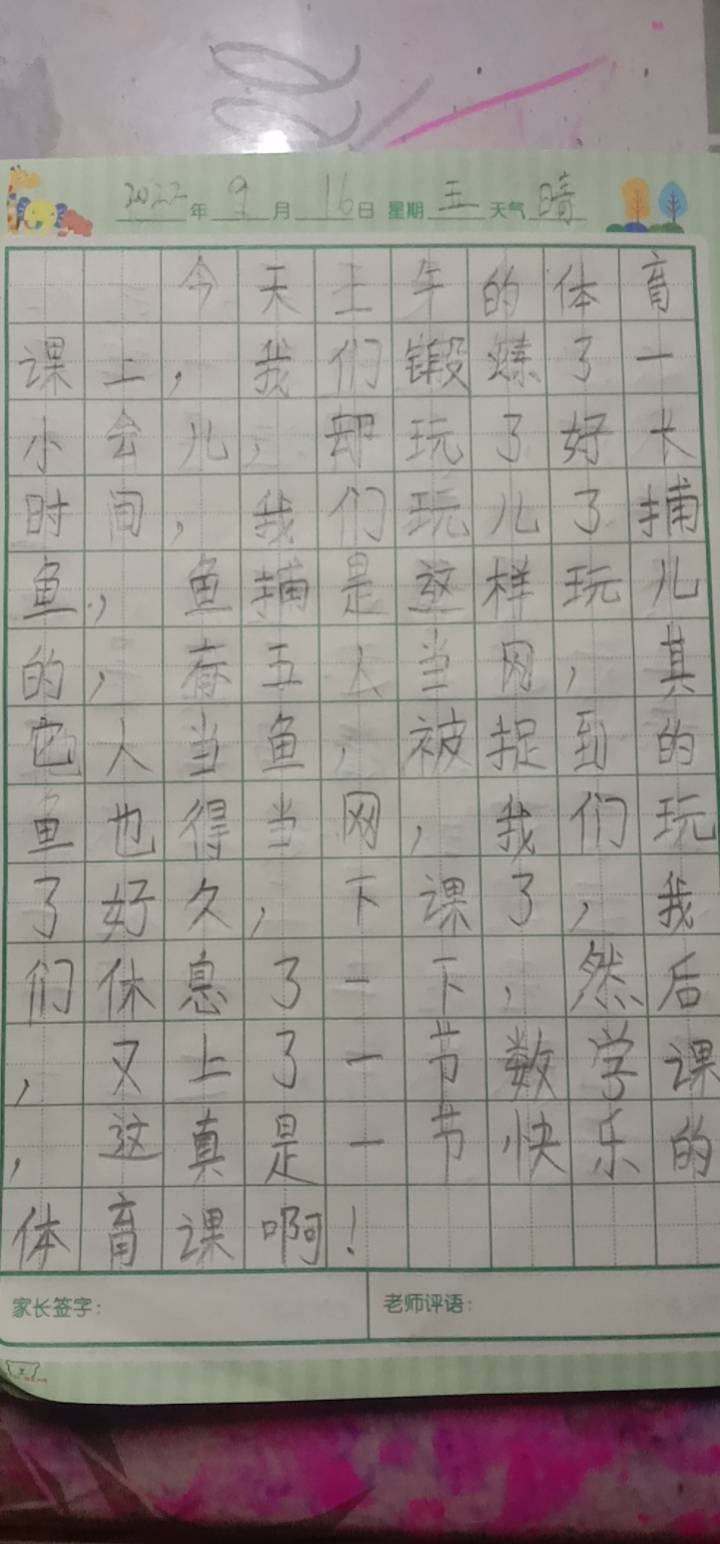 2022年9月16日 星期五 天气晴
今天上午的体育
课上，我们锻炼了一
小会儿，却玩了好长
时间，我们玩儿了捕
鱼，鱼捕是这样玩儿
的，有五人当网，其
它人当鱼，被捉到的
鱼也得当网，我们玩
了好久，下课了，我
们休息了一下，然后
，又上了一节数学课
，这真是一节快乐的
体育课啊！
家长签字：
老师评语：